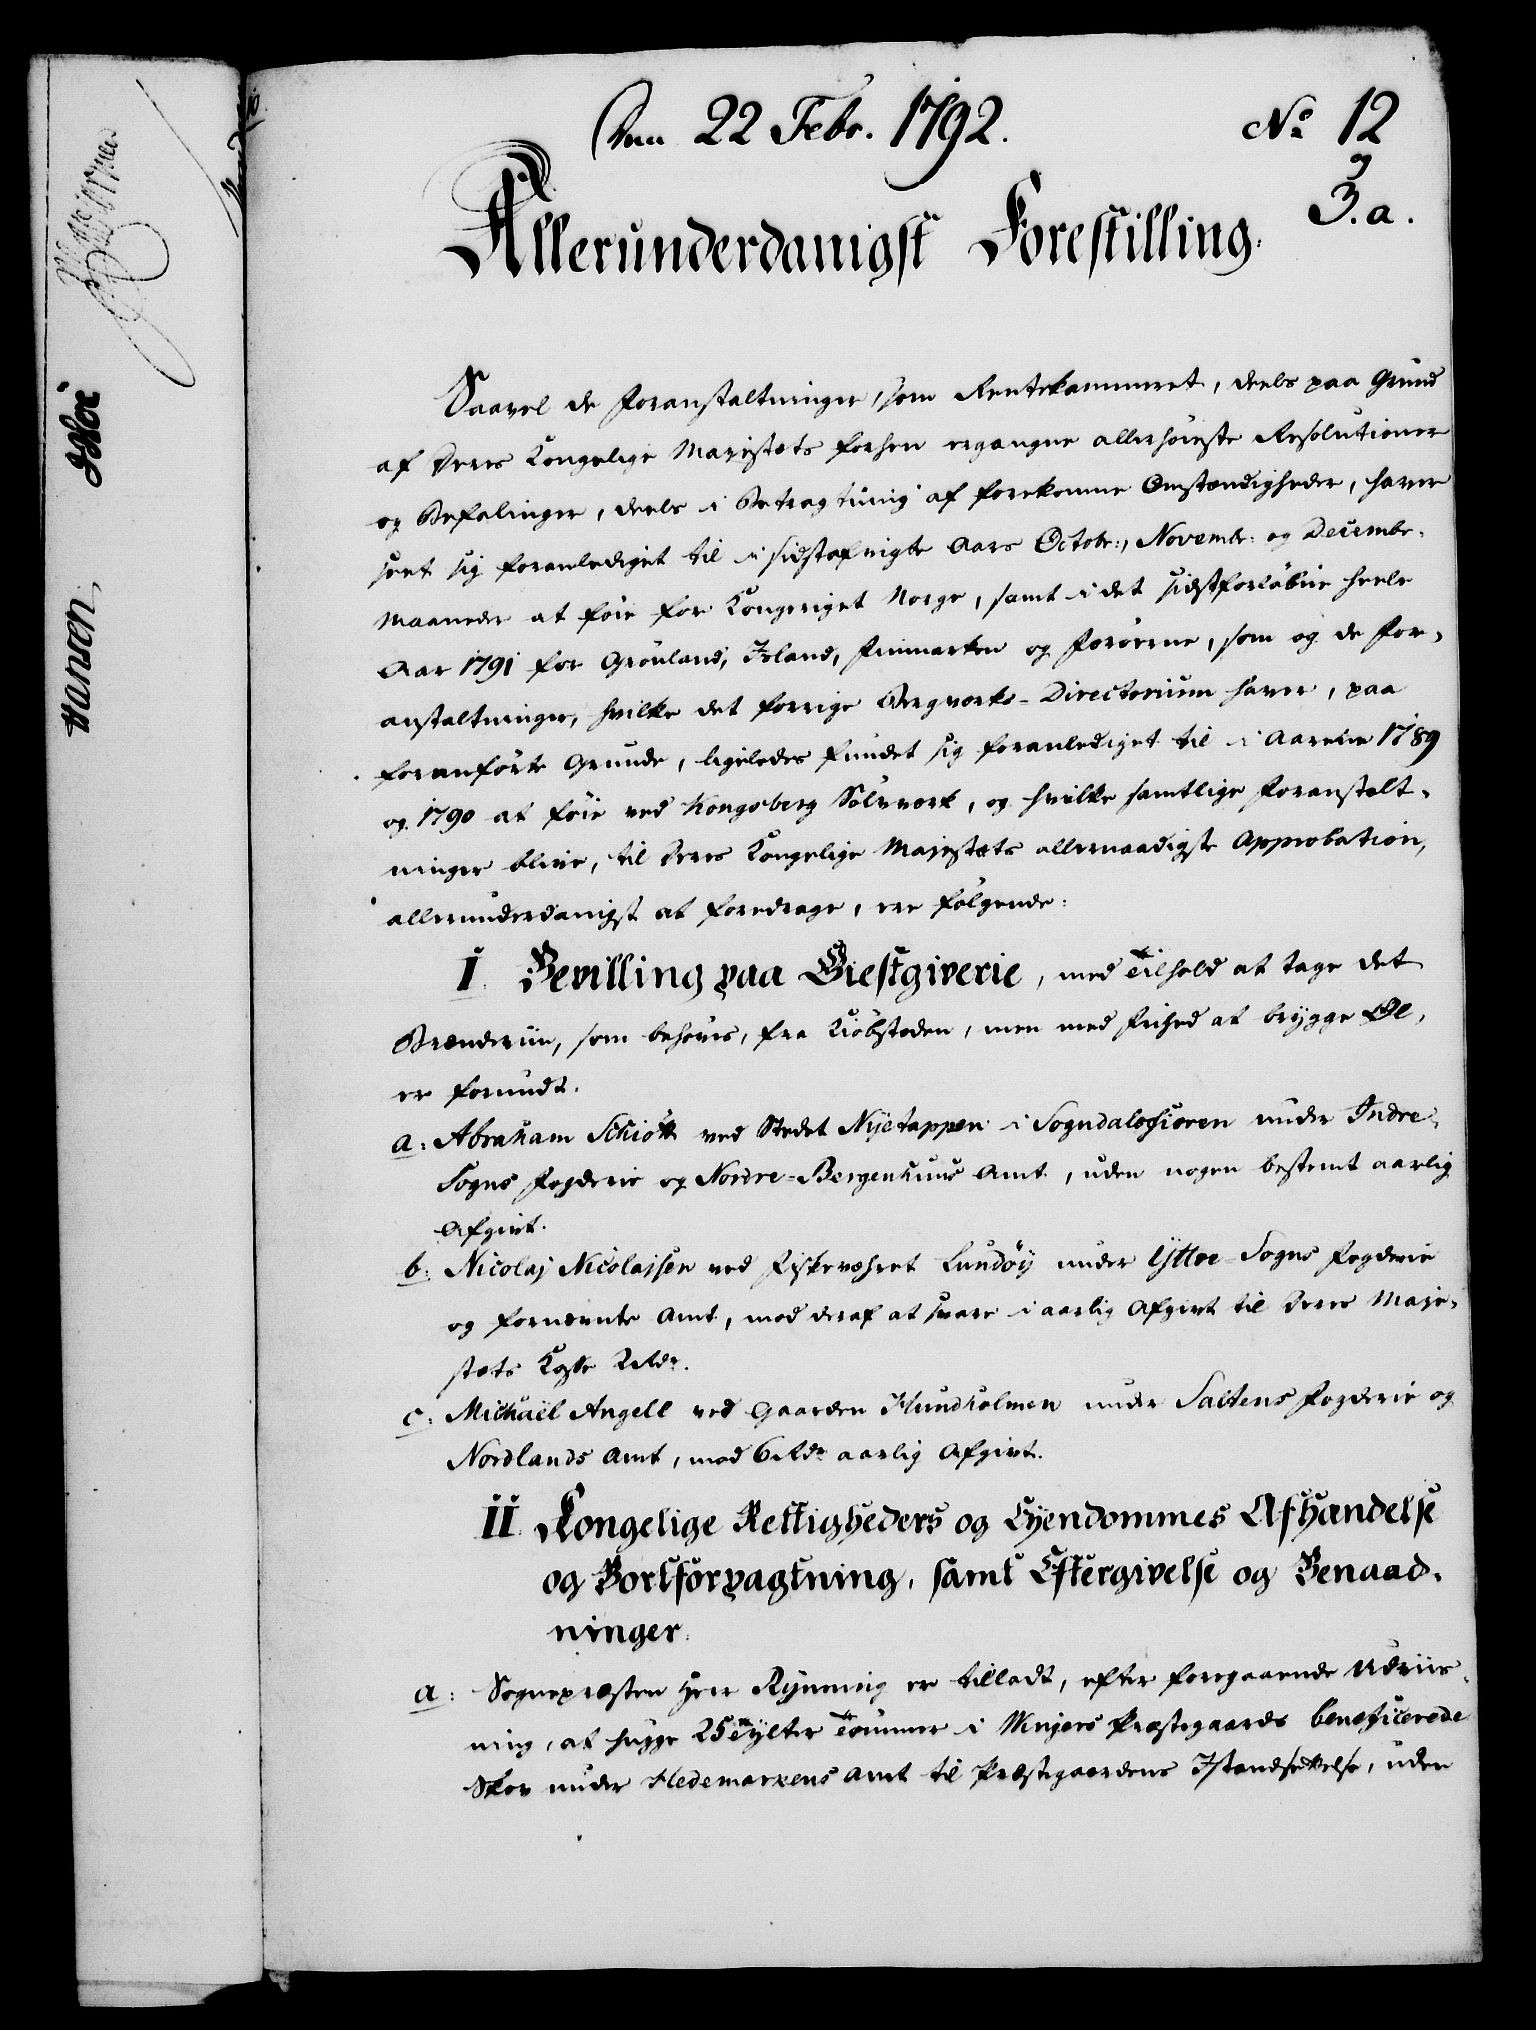 Den 22 Febr. 1792.
No 12
3. a.
Allerunderdanigst Forestilling.
Saavel de Foranstaltninger, som Rentekammeret, deels paa Grund
af Deres Kongelige Majestæts forhen ergangne allerhöieste Resolutioner
og Befalinger, deels i Betragtning af forekomne Omstændigheder, haver
seet sig foranlediget til i sidstafvigte Aars Octobr:, Novembr: og Decembr:
Maaneder at föie for Kongeriget Norge, samt i det sidstforløbne heele
Aar 1791 for Grönland, Island, Finmarken og Færöerne, som og de For-
anstaltninger, hvilke det forrige Bergverks-Directorium haver, paa
foranförte Grunde, ligeledes fundet sig foranlediget til i Aarene 1789
og 1790 at föie ved Kongsberg Sölvverk, og hvilke samtlige Foranstalt-
ninger blive, til Deres Kongelige Majestæts allernaadigste Approbation,
allerunderdanigst at foredrage, ere fölgende:
I. Bevilling paa Giestgiverie, med Tilhold at tage det
Brændeviin, som behöves, fra Kiöbstæden, men med Frihed at brygge Øl,
er forundt.
a: Abraham Schiött ved Stedet Nyetappen i Sogndalsfiøren under Indre-
Sogns Fogderie og Nordre-Bergenhuus Amt, uden nogen bestemt aarlig
Afgivt.
b: Nicolaj Nicolajsen ved Fiskeværet Lundöy under Yttre-Sogns Fogderie
og fornævnte Amt, mod deraf at svare i aarlig Afgivt til Deres Maje-
stæts Kasse 2 Rdr.
c: Michaël Angell ved Gaarden Hundholmen under Saltens Fogderie og
Nordlands Amt, mod 6 Rdr aarlig Afgivt.
II. Kongelige Rettigheders og Eyendommes Afhændelse
og Bortforpagtning, samt Eftergivelse og Benaad-
ninger.
a: Sognepræsten Herr Rynning er tilladt, efter foregaaende Udviis-
ning, at hugge 25 Tylter Tømmer i Wingers Præstegaards beneficerede
Skov under Hedemarkens Amt til Præstegaardens Istandsættelse, uden
Hansen